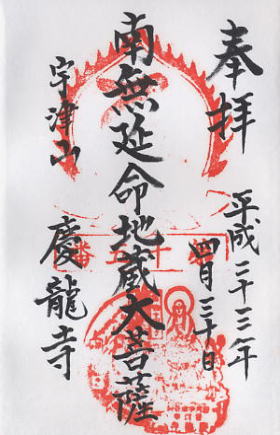 奉拝
平成二十三年
四月三十日
南無延命地蔵大菩薩
宇津山
慶龍寺